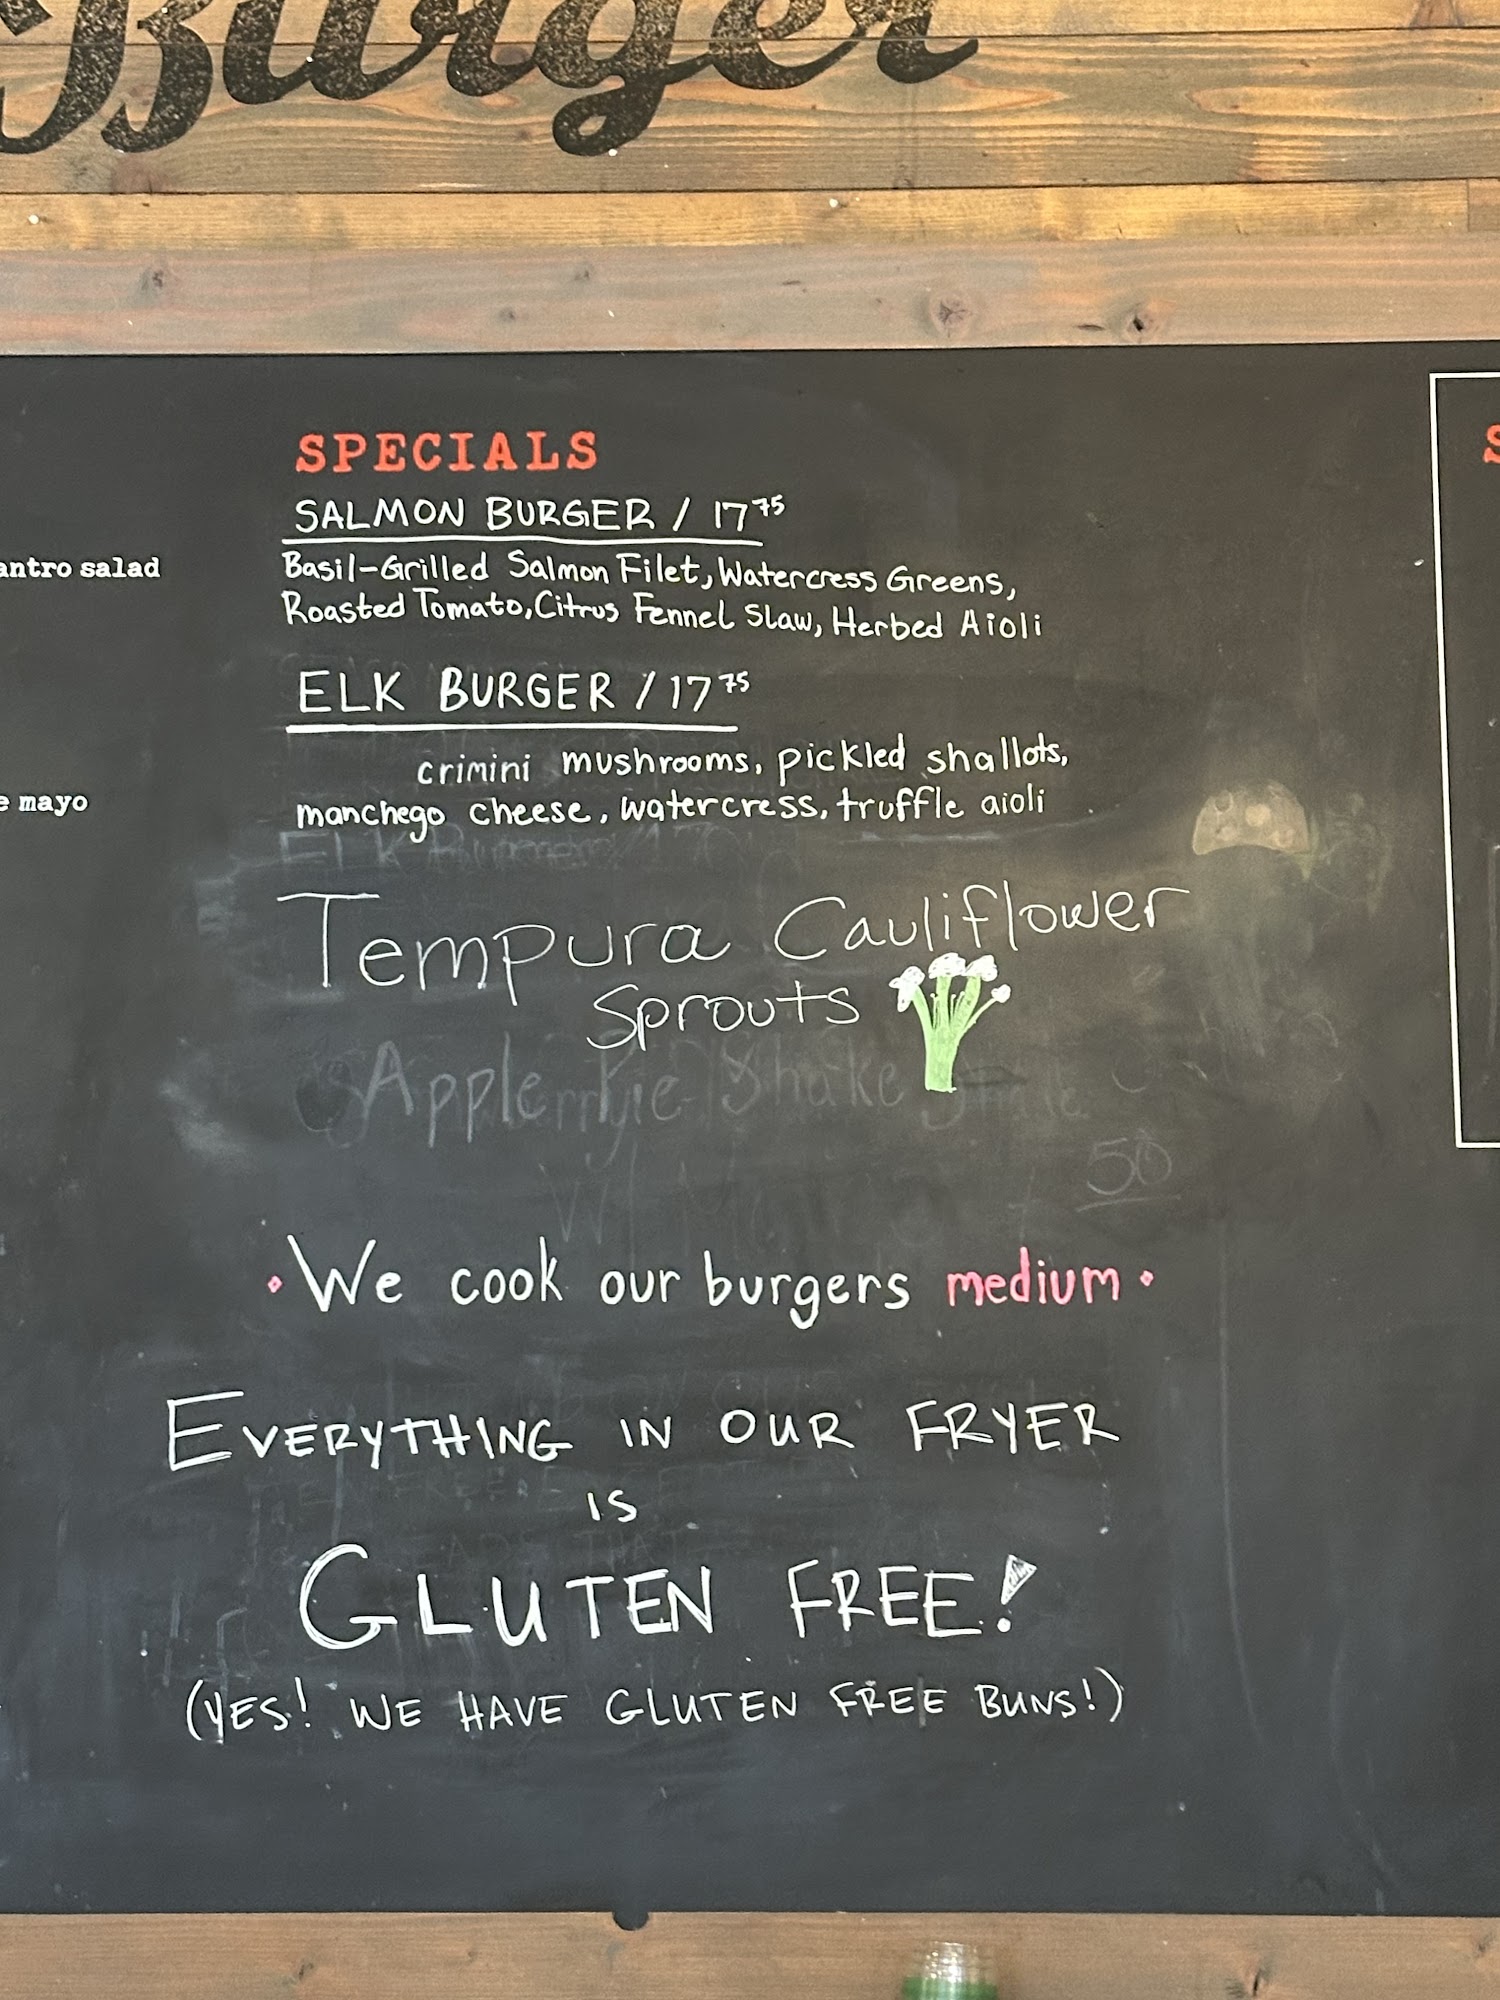 Burger
SPECIALS
SALMON BURGER / 17 75
Basil-Grilled Salmon Filet, Watercress Greens,
Roasted Tomato, Citrus Fennel Slaw, Herbed Aioli
ELK BURGER / 17 75
crimini mushrooms, pickled shallots,
manchego cheese, watercress, truffle aioli
ELK Burger
Tempura Cauliflower
Sprouts
Apple Pie Shake
50
• We cook our burgers medium •
EVERYTHING IN OUR FRYER
IS
GLUTEN FREE!
(YES! WE HAVE GLUTEN FREE BUNS!)
antro salad
e mayo
S